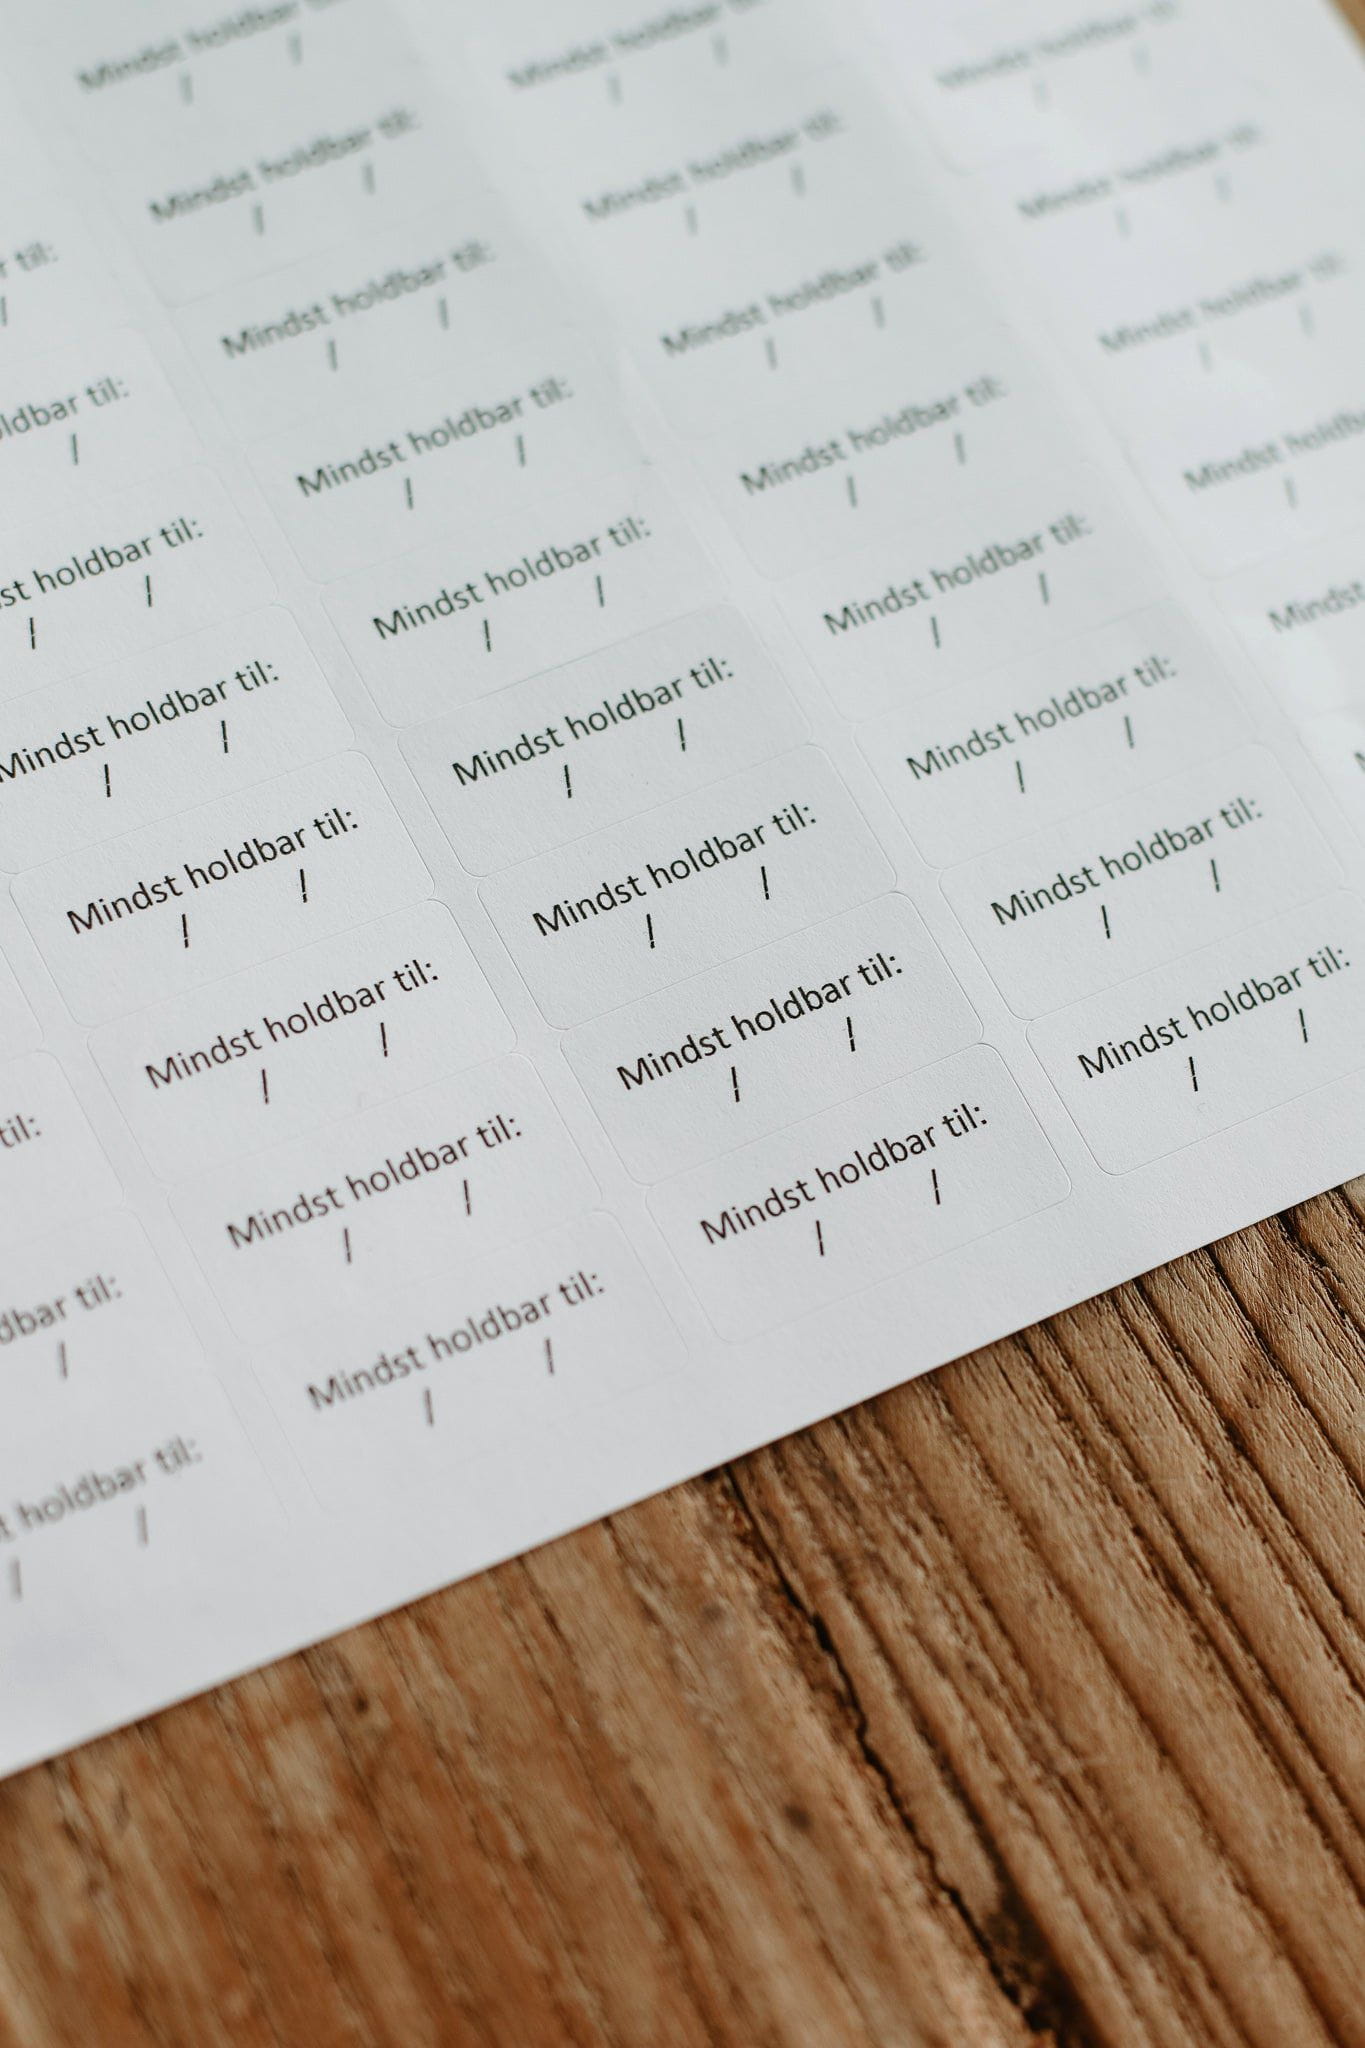 Mindst holdbar
/ /
Mindst holdbar til: Mindst holdbar
/ / / /
til: Mindst holdbar til: Mindst holdbar til: Mindst holdbar til:
/ / / / / / /
til: Mindst holdbar til: Mindst holdbar til: Mindst holdbar til:
/ / / / / / /
holdbar til: Mindst holdbar til: Mindst holdbar til: Mindst holdbar til:
/ / / / / / / /
Mindst holdbar til: Mindst holdbar til: Mindst holdbar til: Mindst
/ / / / / / /
Mindst holdbar til: Mindst holdbar til: Mindst holdbar til: Mindst
/ / / / / /
til: Mindst holdbar til: Mindst holdbar til: Mindst holdbar til:
/ / / / / /
til: Mindst holdbar til: Mindst holdbar til: Mindst holdbar til:
/ / / / / / /
holdbar til: Mindst holdbar til: Mindst holdbar til: Mindst holdbar til:
/ / / / / / / /